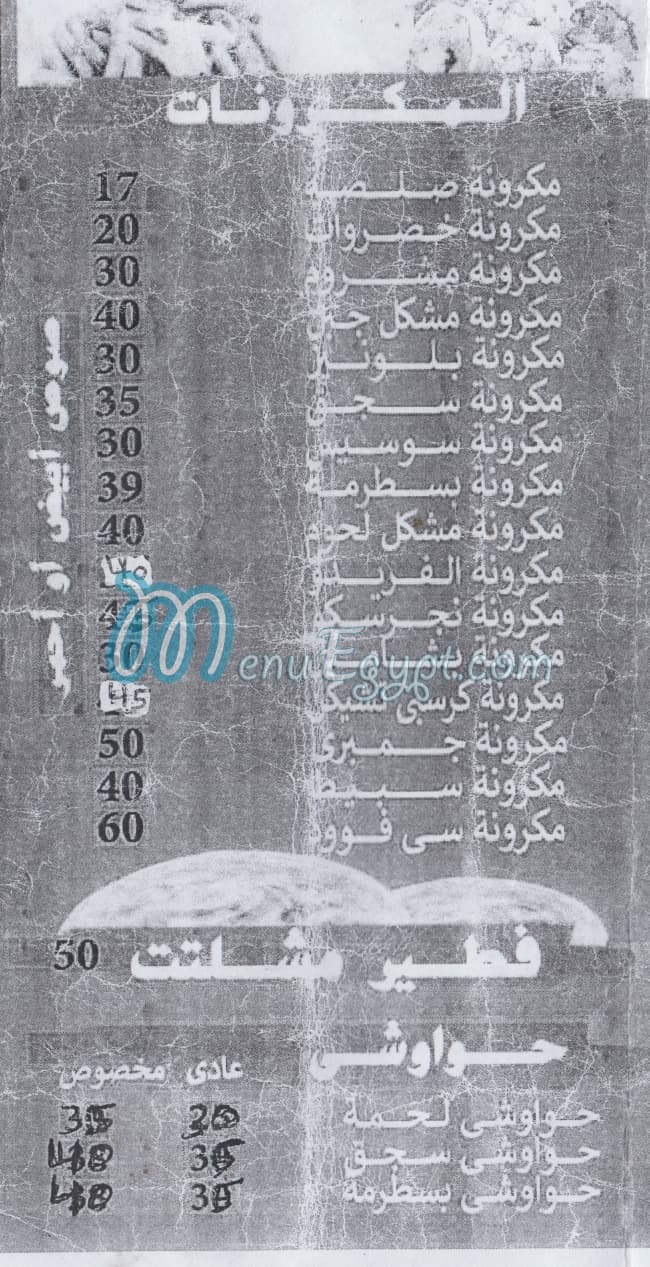 المكرونات
مكرونة صلصة 17
مكرونة خضروات 20
مكرونة مشروم 30
مكرونة مشكل جبن 40
مكرونة بلونيز 30
مكرونة سجق 35
مكرونة سوسيس 30
مكرونة بسطرمة 39
مكرونة مشكل لحوم 40
مكرونة الفريدو
مكرونة نجرسكو
مكرونة بشاميل 30
مكرونة كرسبى تشيكن 45
مكرونة جمبرى 50
مكرونة سبيط 40
مكرونة سى فوود 60
صوص أبيض أو أحمر
MenuEgypt.com
فطير مشلتت 50
حواوشى
عادى مخصوص
حواوشى لحمة
حواوشى سجق
حواوشى بسطرمة